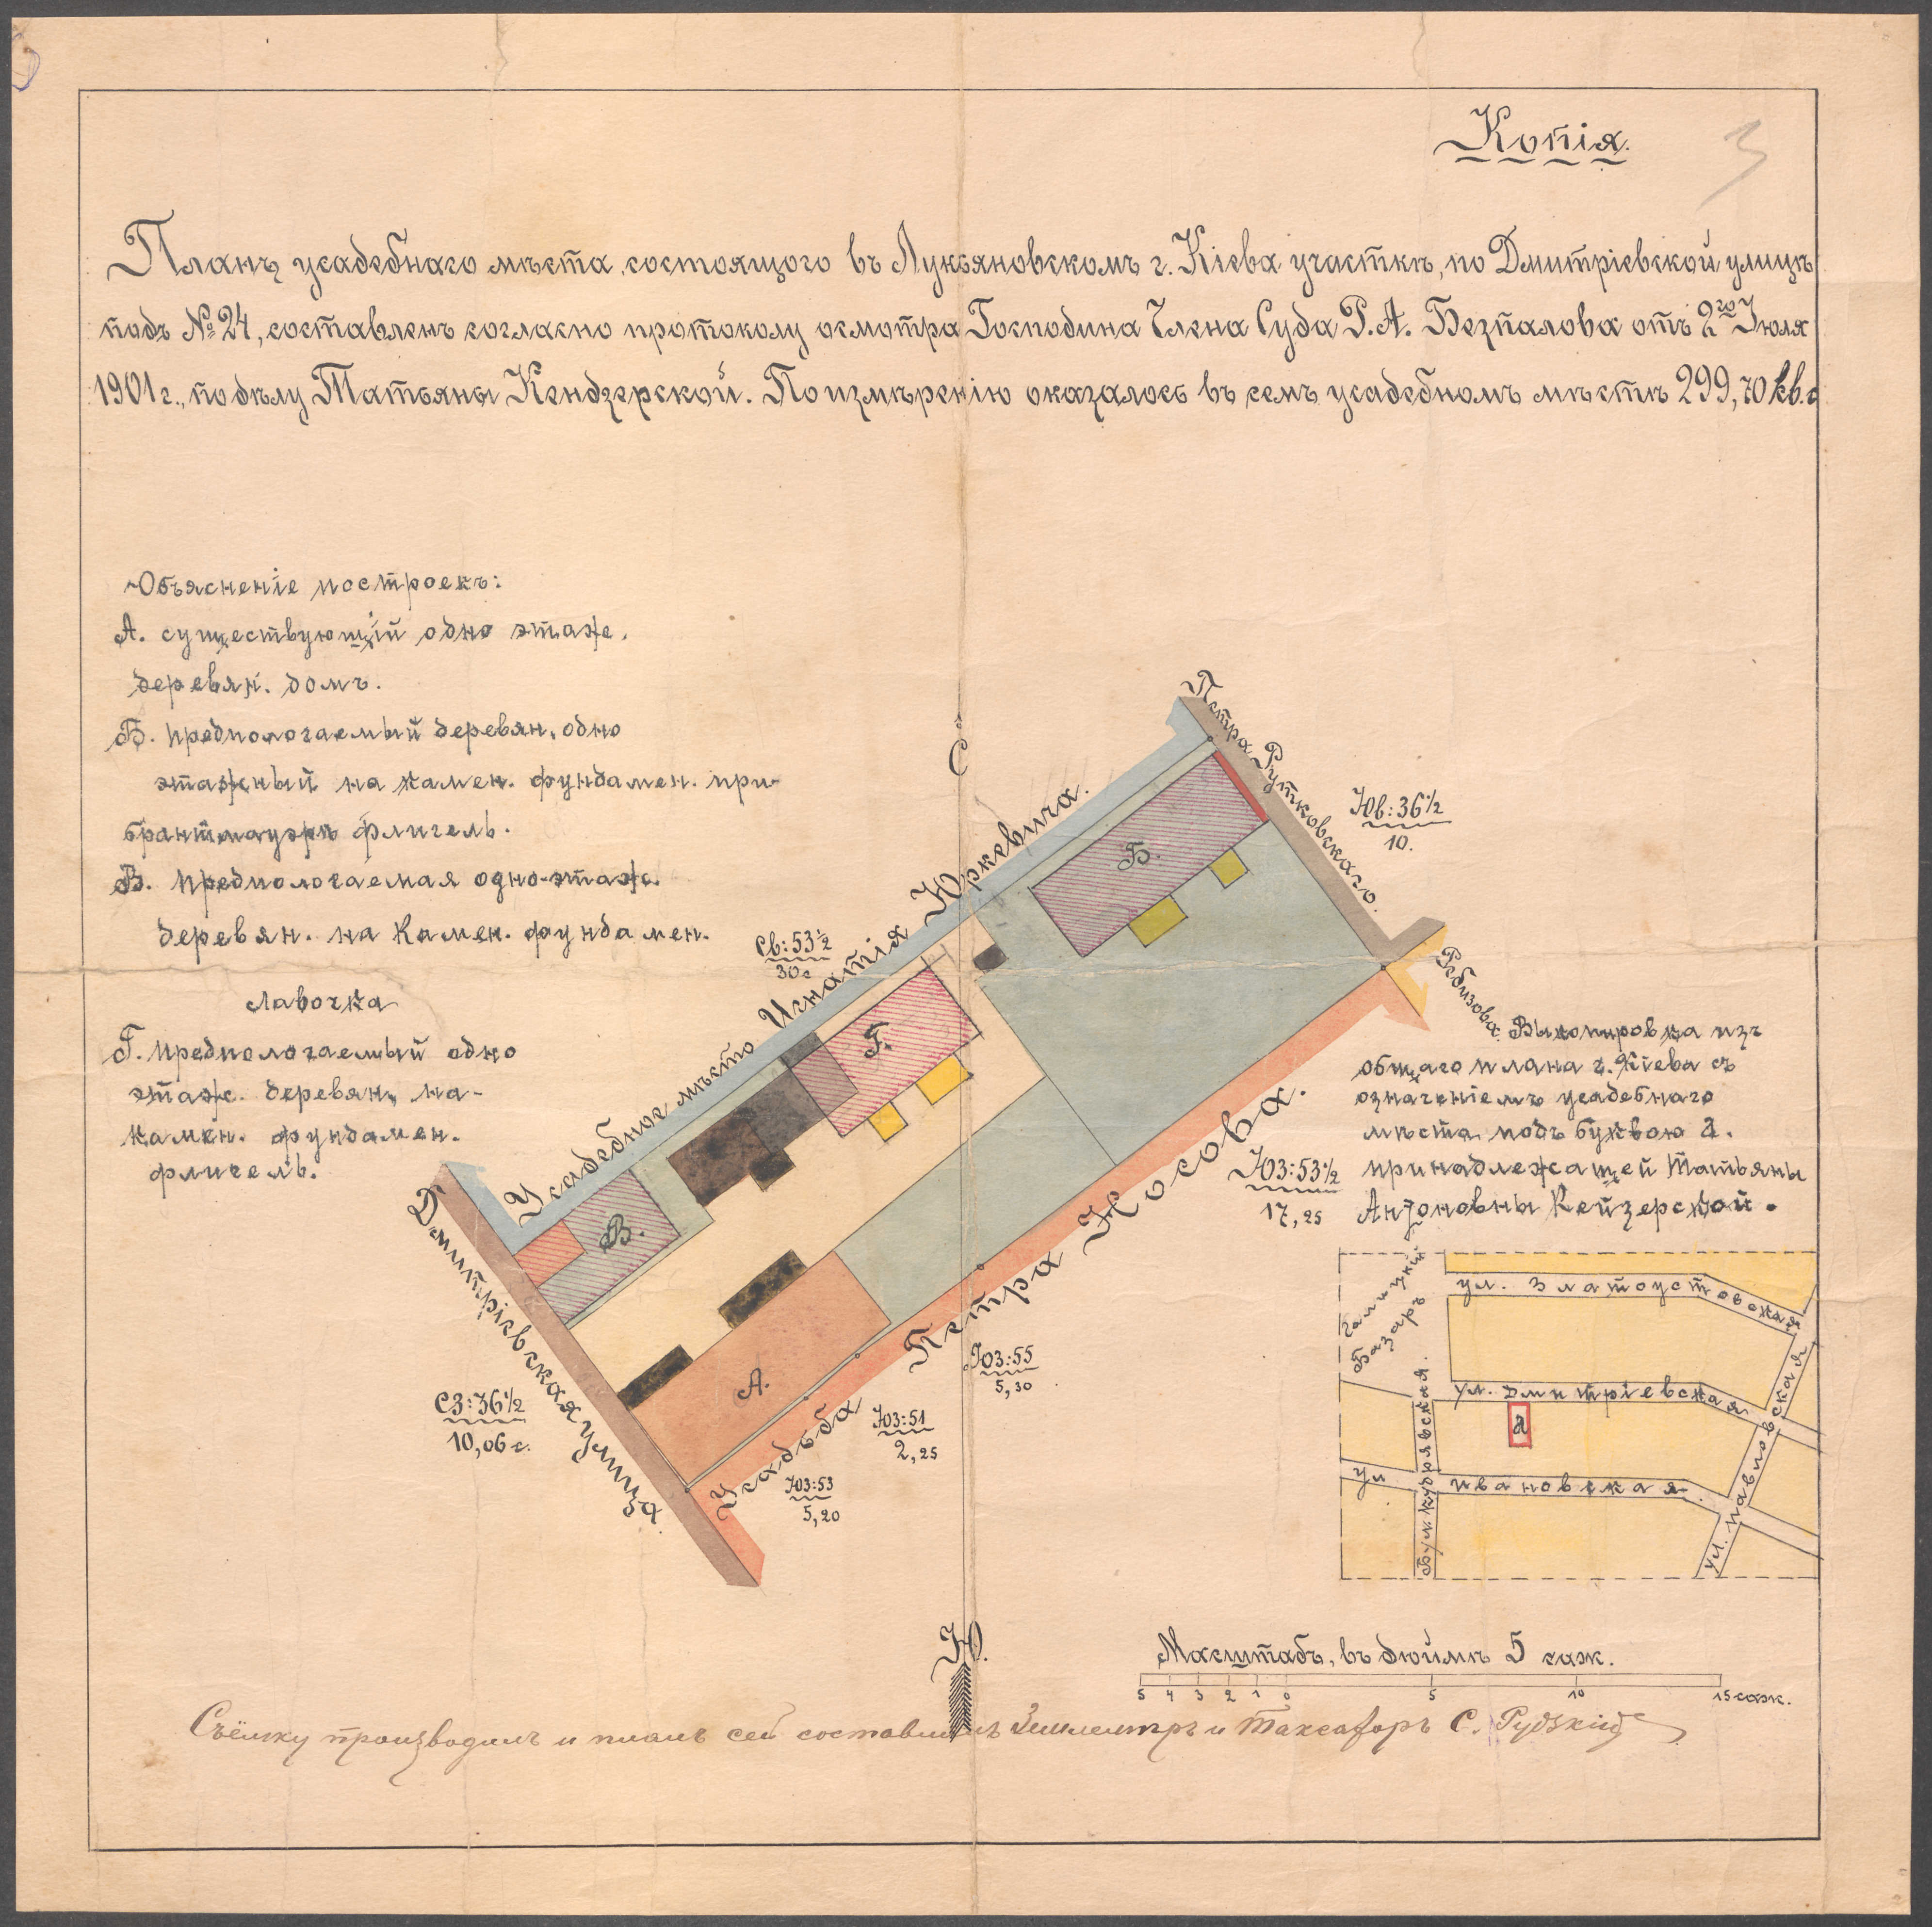 Копія.
3
Планъ усадебнаго мѣста, состоящого въ Лукьяновскомъ г. Кіева участкѣ, по Дмитріевской улицѣ
подъ №24, составленъ согласно протоколу осмотра Господина Члена Суда Р. А. Безпалова отъ 2го Іюля
1901 г., по дѣлу Татьяны Кендзерской. По измѣренію оказалось въ семъ усадебномъ мѣстѣ 299,70 кв. с
Объясненіе построекъ:
А. существующій одно этаже.
деревян. домъ.
Б. предпологаемый деревян. одно
этажный на камен. фундамен. при
брантмауэрѣ флигель.
В. предпологаемая одно-этаж.
деревян. на камен. фундамен.
лавочка
Г. предпологаемый одно
этаж. деревян. на-
камен. фундамен.
флигель.
С
Петра Рутковскаго.
Юв: 36½
10.
Усадебное мѣсто Игнатія Юркевича.
Св: 53½
30 с
Б.
Г.
В.
А.
Ребизова
Дмитріевская улица.
СЗ: 36½
10,06 с.
Усадьба Петра Носова.
ЮЗ: 53½
17,25
ЮЗ: 55
5,30
ЮЗ: 51
2,25
ЮЗ: 53
5,20
Выкопировка изъ
общаго плана г. Кіева съ
означеніемъ усадебнаго
мѣста подъ буквою а.
принадлежащей Татьяны
Антоновны Кейзерской.
Галицкій
Базаръ
ул. Златоустовская
ул. Дмитріевская
а
ул ивановская
Бул. кудрявская.
ул. павловская
Ю.
Масштабъ, въ дюймѣ 5 саж.
5 4 3 2 1 0 5 10 15 саж.
Съёмку производилъ и планъ сей составилъ Землемѣръ и Таксаторъ С. Рудзкій